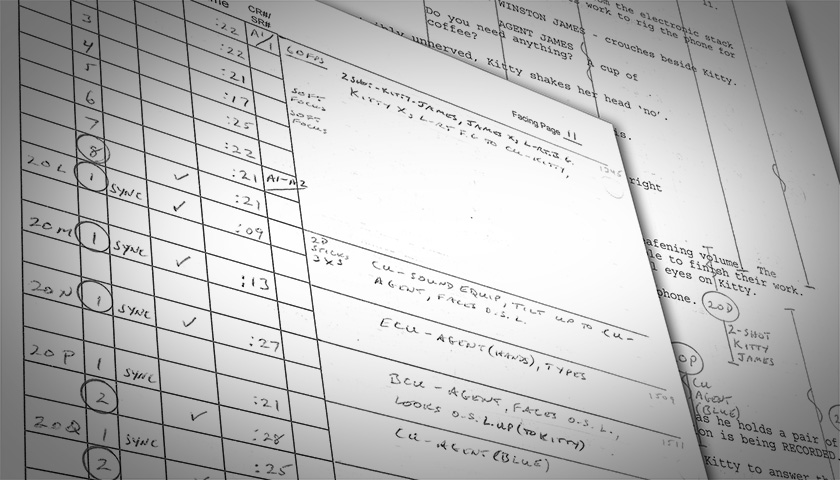 CR#/
SR#
3 :22 A1/1 60FPS
4 :22
5 :21
6 :17
7 :25
8 :22
20L 1 SYNC :21 A1-A2
:21
20M 1 SYNC :09
20N 1 SYNC :13
20P 1 SYNC :27
2 :21
20Q 1 SYNC :28
2 :25
Facing Page 11
2 SHOT-KITTY-JAMES, JAMES X, L-RT. B.G.
KITTY XS L-RT F.G TO CU-KITTY,
SOFT
FOCUS
SOFT
FOCUS
2D
STICKS
3XS
CU-SOUND EQUIP, TILT UP TO CU-
AGENT, FACES O.S.L.
ECU-AGENT (HANDS), TYPES
1509
BCU-AGENT, FACES O.S.L.,
LOOKS O.S.L. UP (TO KITTY)
1511
CU-AGENT (BLUE)
from the electronic stack
work to rig the phone for
11.
WINSTON JAMES - crouches beside Kitty.
Do you need anything? A cup of
coffee?
AGENT JAMES
unnerved, Kitty shakes her head 'no'.
right
afening volume. The
le to finish their work.
l eyes on Kitty.
phone.
20P
2-SHOT
KITTY
JAMES
CU
AGENT
(BLUE)
as he holds a pair of
on is being RECORDED.
Kitty to answer the